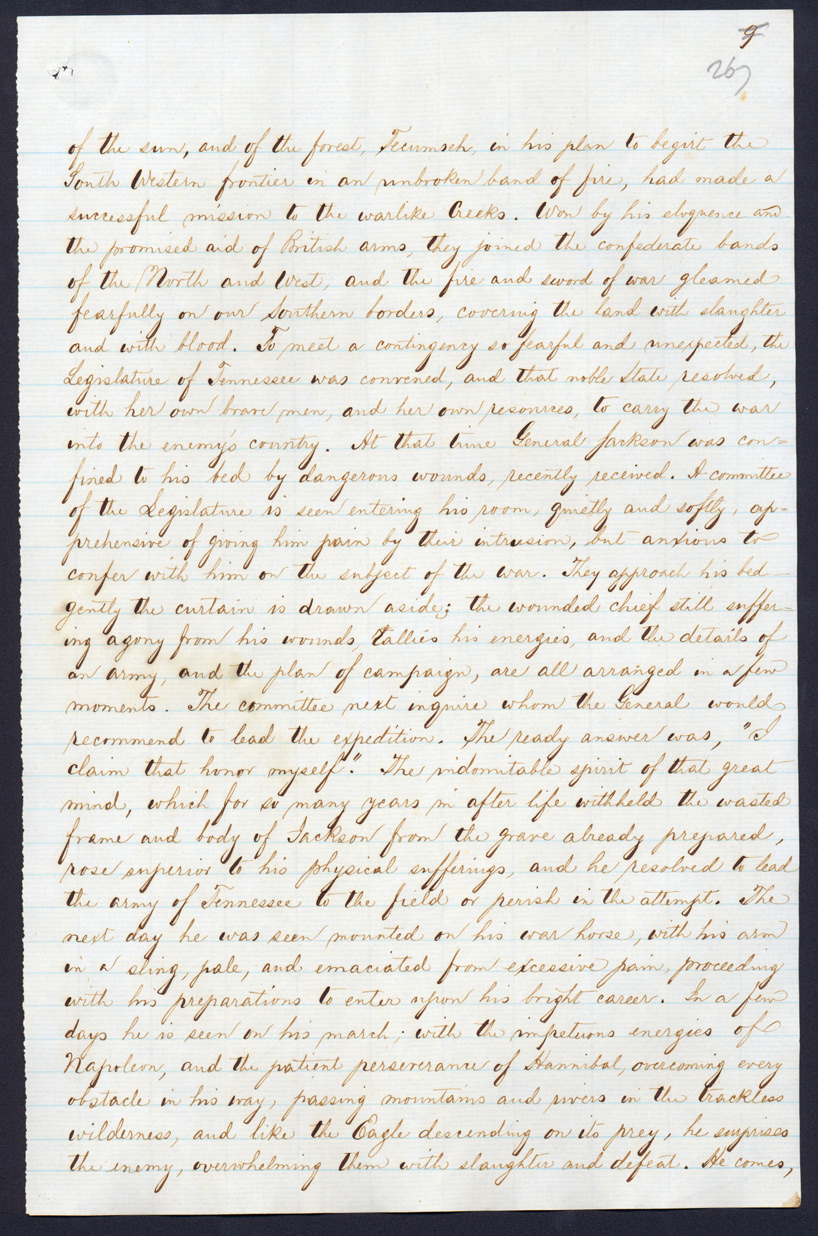 9
267
of the sun, and of the forest, Tecumseh, in his plan to begirt the
South Western frontier in an unbroken band of fire, had made a
successful mission to the warlike Creeks. Won by his eloquence and
the promised aid of British arms, they joined the confederate bands
of the North and West, and the fire and sword of war gleamed
fearfully on our Southern borders, covering the land with slaughter
and with blood. To meet a contingency so fearful and unexpected, the
Legislature of Tennessee was convened, and that noble State resolved,
with her own brave men, and her own resources, to carry the war
into the enemy's country. At that time General Jackson was con=
fined to his bed by dangerous wounds, recently received. A committee
of the Legislature is seen entering his room, quietly and softly, ap=
prehensive of giving him pain by their intrusion, but anxious to
confer with him on the subject of the war. They approach his bed—
gently the curtain is drawn aside; the wounded chief still suffer=
ing agony from his wounds, rallies his energies, and the details of
an army, and the plan of campaign, are all arranged in a few
moments. The committee next inquire whom the General would
recommend to lead the expedition. The ready answer was, "I
claim that honor myself." The indomitable spirit of that great
mind, which for so many years in after life withheld the wasted
frame and body of Jackson from the grave already prepared,
rose superior to his physical sufferings, and he resolved to lead
the army of Tennessee to the field or perish in the attempt. The
next day he was seen mounted on his war horse, with his arm
in a sling, pale, and emaciated from excessive pain, proceeding
with his preparations to enter upon his bright career. In a few
days he is seen on his march; with the impetuous energies of
Napoleon, and the patient perseverance of Hannibal, overcoming every
obstacle in his way, passing mountains and rivers in the trackless
wilderness, and like the Eagle descending on its prey, he surprises
the enemy, overwhelming them with slaughter and defeat. He comes,